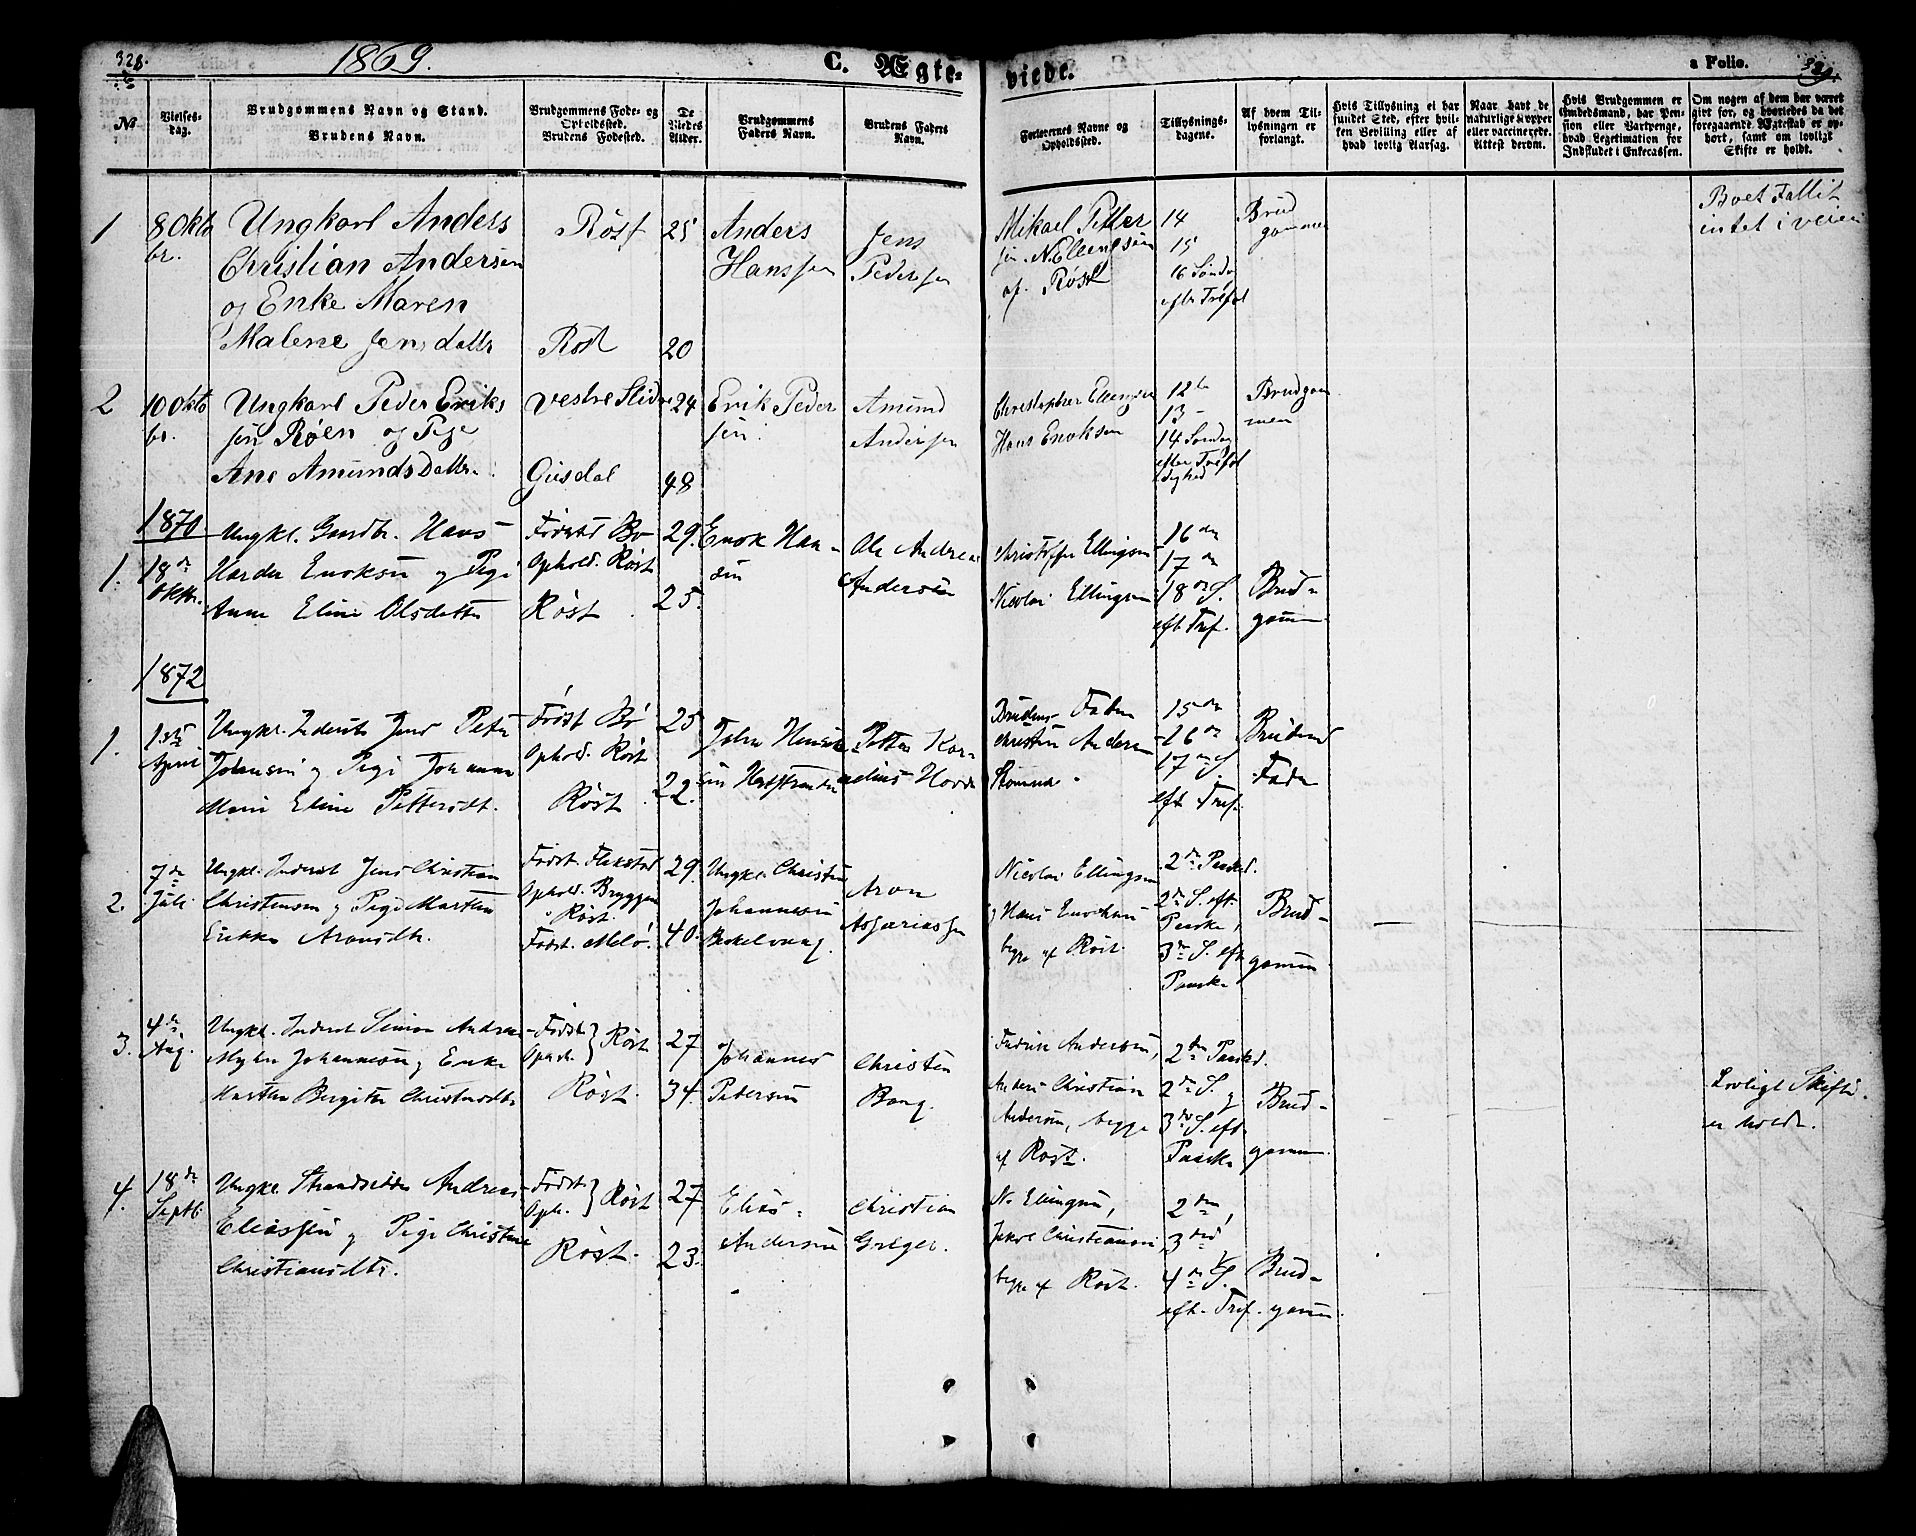 328.
1869.
C. Ægte-
viede.
a Folio.
329.
No
Vielses-
dag.
Brudgommens Navn og Stand.
Brudens Navn.
Brudgommens Føde- og
Opholdssted.
Brudens Fødested.
De
Viedes
Alder.
Brudgommens
Faders Navn.
Brudens Faders
Navn.
Forlovernes Navne og
Opholdssted.
Tillysnings-
dagene.
Af hvem Til-
lysningen er
forlangt.
Hvis Tillysning ei har
fundet Sted, efter hvil-
ken Bevilling eller af
hvad lovlig Aarsag.
Naar havt de
naturlige Kopper
eller vaccinerede.
Attest derom.
Hvis Brudgommen er
Embedsmand, har Pen-
sion eller Vartpenge,
hvad Legitimation for
Indskudet i Enkecassen.
Om nogen af dem har været
gift før, og hvorledes da det
foregaaende Ægteskab er op-
hørt, samt om lovligt
Skifte er holdt.
1
8 Okto
br.
Ungkarl Anders
Christian Andersen
og Enke Maren
Malene Jensdattr
Røst
Røst
25
20
Anders
Hanssen
Jens
Pedersen
Mikael Petter
sen. N. Ellingsen
af Røst
14
15
16 Sønda
eftr Trefol
Brud
gommen
Boet Fallit
intet i veien
2
10 Okto
br.
Ungkarl Peder Eriks
sen Røen og Pige
Ane Amunds Dattr.
Vestre Slidre
Gusdal
24
48
Erik Peder
sen.
Amund
Andersen
Christopher Ellingsen
Hans Enoksen
12te
13 -
14 Søndag
efter Trefol
dighed
Brudgom
men
1870.
1.
18de
Oktbr.
Ungkl. Gaardbr. Hans
Harder Enoksen og Pige
Anne Eline Olsdatter
Født Bø
Ophold. Røst
Røst
29.
25.
Enok Han-
sen
Ole Andreas
Andersen
Christoffer Ellingsen
Nicolai Ellingsen
16de
17de
18de S.
eft. Tref.
Brud-
gommen
1872
1.
1ste
April
Ungkl. Inderst Jens Peter
Johansen og Pige Johanna
Marie Eline Pettersdt.
Født Bø
Ophold. Røst
Røst
25
22.
Johan
Petter Kor-
nelius Hovde
Brudens Fader
Christen Andersen
15de
16de
17de S
eft. Tref.
Brudens
Fader
2.
7de
Juli
Ungkl. Inderst Jens Christian
Christensen og Pige Marthe
Erikke Aronsdtr.
Født. Flakstad
Ophold. Bryggen
Røst.
Født. Melø.
29.
40.
Ungkl. Christen
Johannesen
Aron
Asfariassen
Nicolai Ellingsen
og Hans Enoksen
begge af Røst.
2den Paasked.
2den S. eft.
Paaske,
3de S. eft
Paaske
Brud-
gommen
3.
4de
Aug.
Ungkl. Inderst Simon Andreas
Johannesen og Enke
Marthe Birgitte Christensdtr
Født
Ophold.
Røst
Røst.
27
34.
Johannes
Petersen
Christen
Bang.
Fredrik Andersen,
Anders Christian
Andersen, begge
af Røst.
2den Paasked.
2den S. og
3de S. eft.
Paaske
Brud-
gommen.
Lovligt Skifte
er holdt.
4.
18de
Septb
Ungkl. Strandsidder Andreas
Eliassen og Pige Christine
Christiansdtr.
Født
Oph.
Røst
Røst.
27.
23.
Elias
Andersen
Christian
Greger.
N. Ellingsen,
Jakob Christiansen,
begge af Røst.
2den,
3die
4de S.
eft. Tref.
Brud-
gommen.